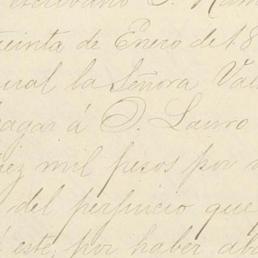 escribano D. Ram
treinta de Enero de 18
cual la Señora Val
pagar á D. Lauro
diez mil pesos por
del perjuicio que
este, por haber